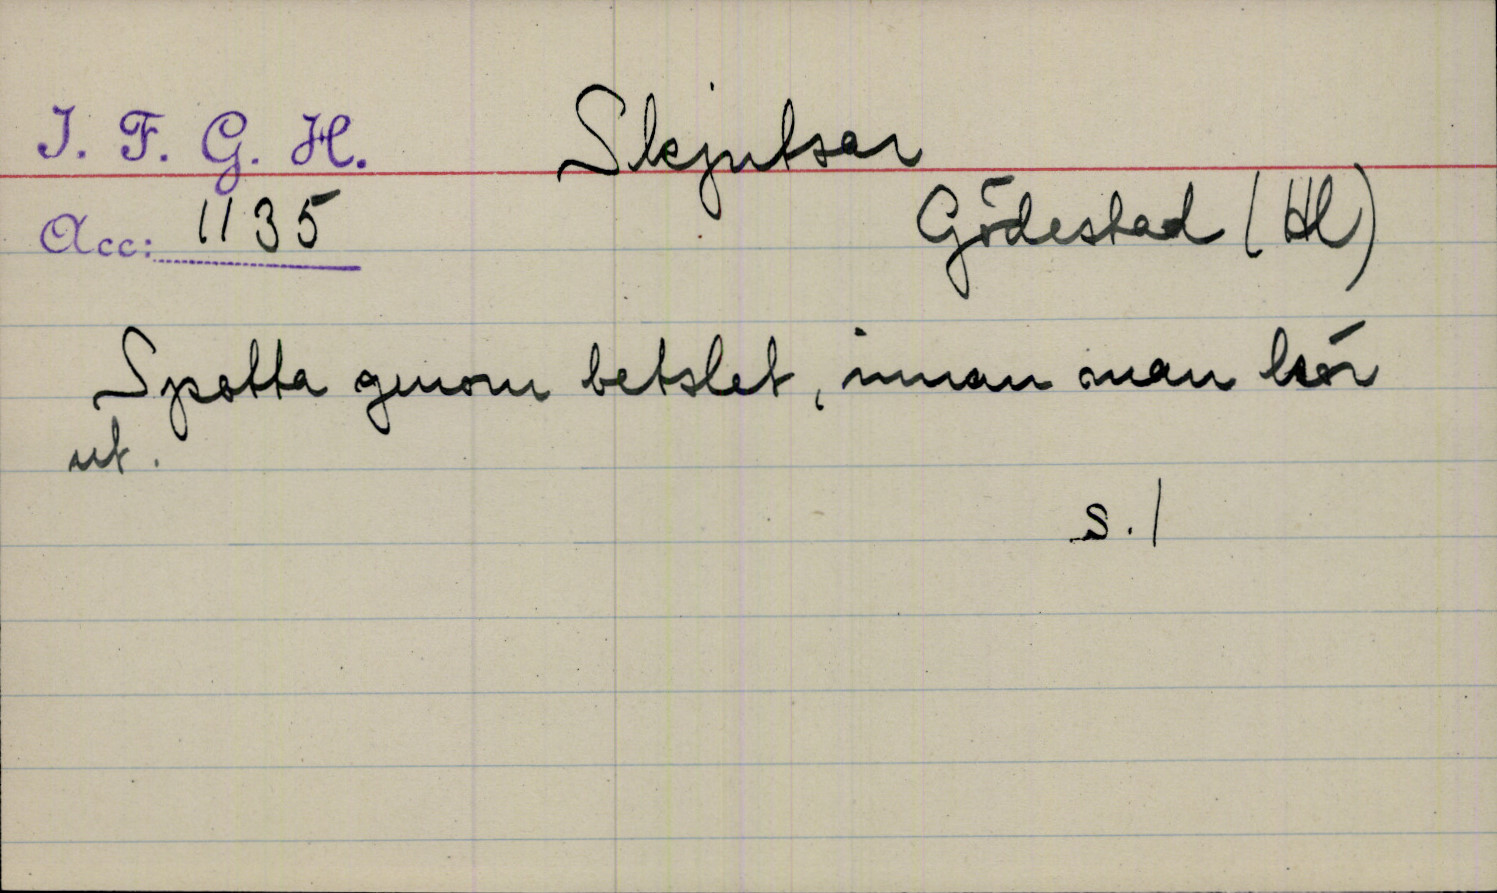 I. F. G. H.
Skjutsar
Acc: 1135
Gödestad (Hl)
Spotta genom betslet, innan man kör
ut.
s. 1